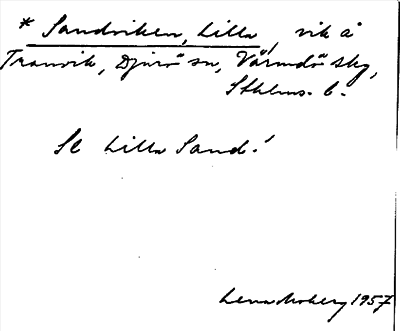 * Sandviken, Lilla, vik å
Tranvik, Djurö sn, Värmdö skg,
Sthlms. l.
Se Lilla Sand.!
Lena Moberg 1957